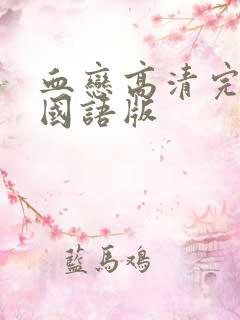 血戀高清完
國語版
藍馬鴻